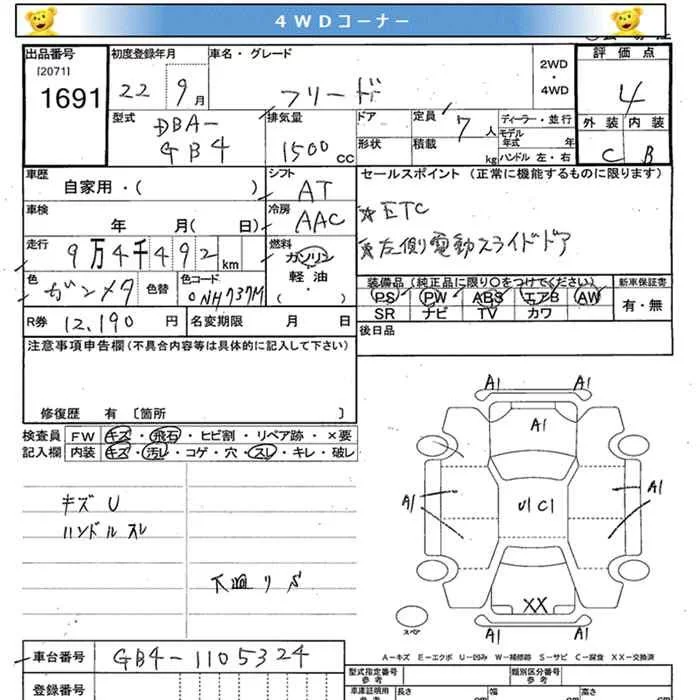 4WDコーナー
出品番号 初度登録年月 車名・グレード 2WD・4WD 評価点
[2071]
1691 22 9月 フリード 4
型式 DBA-GB4 排気量 1500cc ドア 形状 定員 7人 積載 kg ディーラー・並行 モデル年式 年 ハンドル 左・右 外装 内装
C B
車歴 自家用・( ) シフト AT セールスポイント (正常に機能するものに限ります)
車検 年 月(日) 冷房 AAC ☆ETC
走行 9万4千492km 燃料 ガソリン 軽・油 ・( ) ☆左側電動スライドドア
色 ガンメタ 色替 色コード NH737M 装備品(純正品に限り○をつけてください) 新車保証書
PS PW ABS エアB AW 有・無
SR ナビ TV カワ
R券 12,190円 名変期限 月 日 後日品
注意事項申告欄(不具合内容等は具体的に記入して下さい)
修復歴 有 [箇所 ]
検査員 FW キズ・飛石・ヒビ割・リペア跡・×要
記入欄 内装 キズ・汚レ・コゲ・穴・スレ・キレ・破レ
キズ U
ハンドル スレ
下廻り S
A1 A1
A1
A1 U1 C1 A1
XX
A1 A1
スペア
A-キズ E-エクボ U-凹み W-補修跡 S-サビ C-腐食 XX-交換済
車台番号 GB4-1105324
登録番号
型式指定番号 参考 類別区分番号 参考
車庫証明用 参考 長さ cm 幅 cm 高さ cm